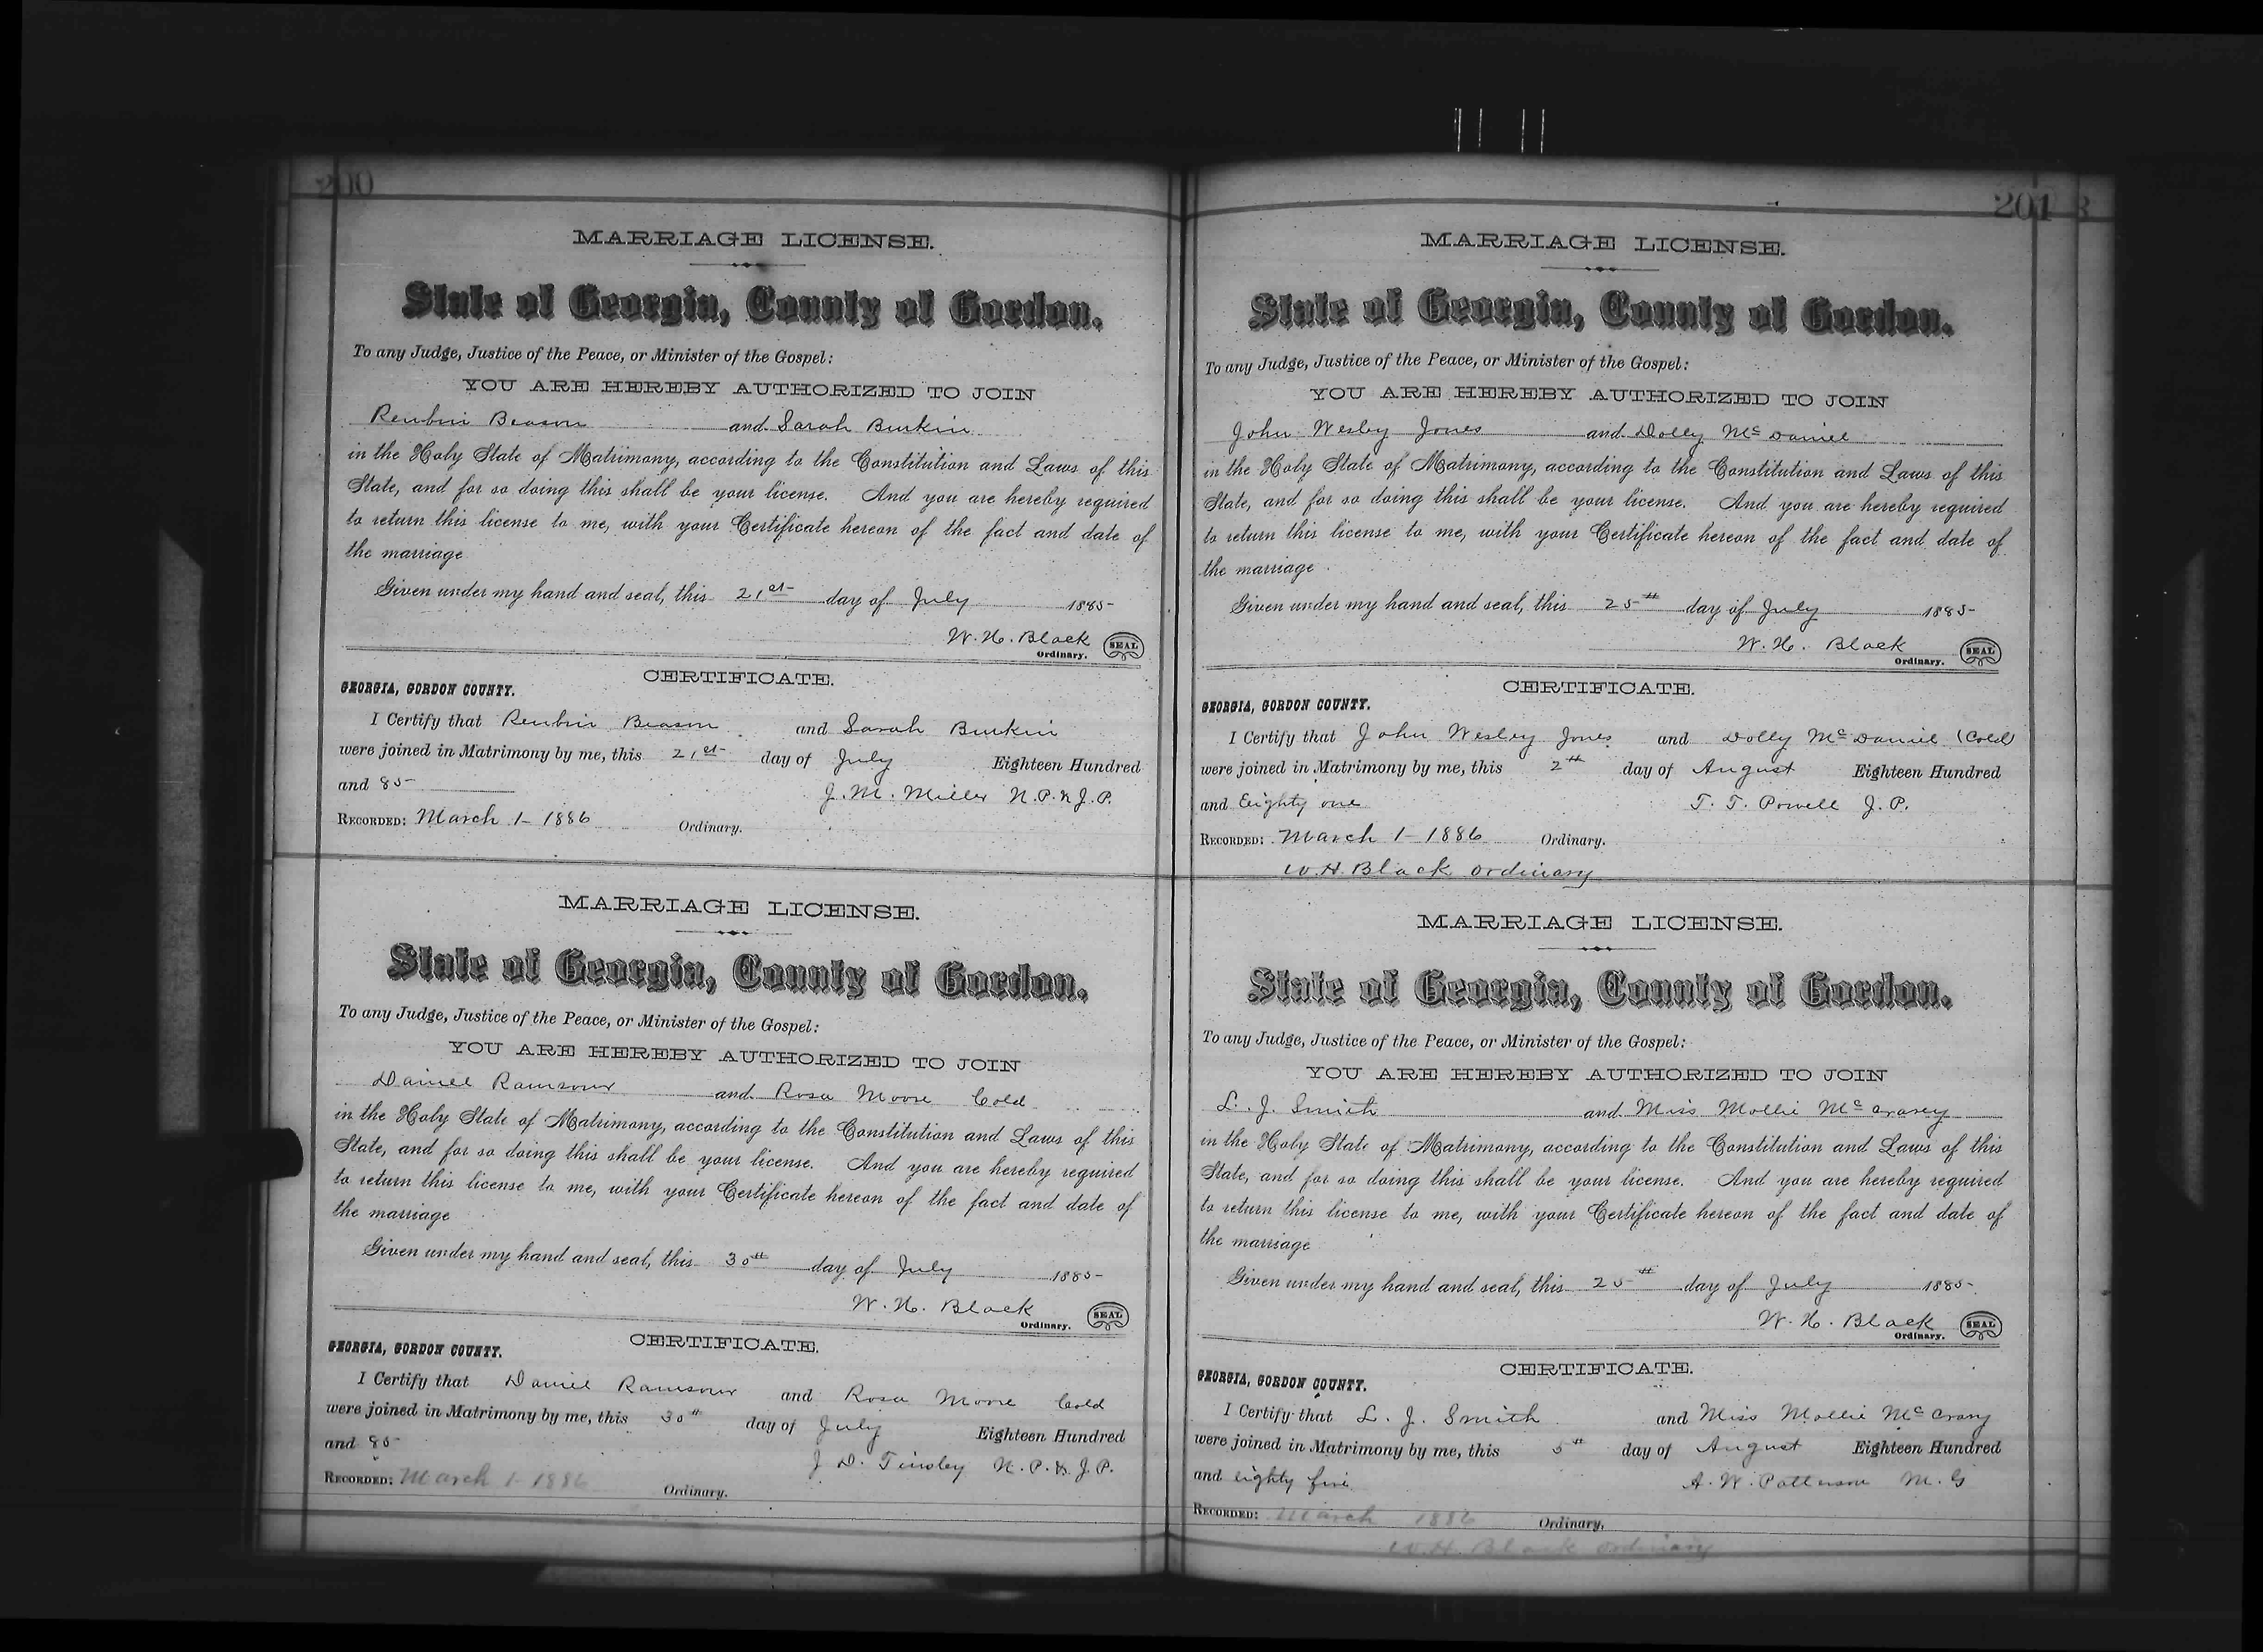 200
MARRIAGE LICENSE.
State of Georgia, County of Gordon.
To any Judge, Justice of the Peace, or Minister of the Gospel:
YOU ARE HEREBY AUTHORIZED TO JOIN
Reubin Beason and Sarah Burkin
in the Holy State of Matrimony, according to the Constitution and Laws of this
State, and for so doing this shall be your license. And you are hereby required
to return this license to me, with your Certificate hereon of the fact and date of
the marriage
Given under my hand and seal, this 21st day of July 1885
W. H. Black SEAL
Ordinary.
CERTIFICATE.
GEORGIA, GORDON COUNTY.
I Certify that Reubin Beason and Sarah Burkin
were joined in Matrimony by me, this 21st day of July Eighteen Hundred
and 85
J. M. Miller N.P. & J.P.
RECORDED: March 1 - 1886 Ordinary.
MARRIAGE LICENSE.
State of Georgia, County of Gordon.
To any Judge, Justice of the Peace, or Minister of the Gospel:
YOU ARE HEREBY AUTHORIZED TO JOIN
Daniel Ramsour and Rosa Moore Cold
in the Holy State of Matrimony, according to the Constitution and Laws of this
State, and for so doing this shall be your license. And you are hereby required
to return this license to me, with your Certificate hereon of the fact and date of
the marriage
Given under my hand and seal, this 30th day of July 1885
W. H. Black SEAL
Ordinary.
CERTIFICATE.
GEORGIA, GORDON COUNTY.
I Certify that Daniel Ramsour and Rosa Moore Cold
were joined in Matrimony by me, this 30th day of July Eighteen Hundred
and 85
J D. Tinsley N. P. & J. P.
RECORDED: March 1 - 1886 Ordinary.
201
MARRIAGE LICENSE.
State of Georgia, County of Gordon.
To any Judge, Justice of the Peace, or Minister of the Gospel:
YOU ARE HEREBY AUTHORIZED TO JOIN
John Wesley Jones and Dolly McDaniel
in the Holy State of Matrimony, according to the Constitution and Laws of this
State, and for so doing this shall be your license. And you are hereby required
to return this license to me, with your Certificate hereon of the fact and date of
the marriage
Given under my hand and seal, this 25th day of July 1885
W. H. Black SEAL
Ordinary.
CERTIFICATE.
GEORGIA, GORDON COUNTY.
I Certify that John Wesley Jones and Dolly McDaniel (Cold)
were joined in Matrimony by me, this 2th day of August Eighteen Hundred
and Eighty one
T. T. Powell J. P.
RECORDED: March 1 - 1886 Ordinary.
W. H. Black ordinary
MARRIAGE LICENSE.
State of Georgia, County of Gordon.
To any Judge, Justice of the Peace, or Minister of the Gospel:
YOU ARE HEREBY AUTHORIZED TO JOIN
L. J. Smith and Miss Mollie McCrarey
in the Holy State of Matrimony, according to the Constitution and Laws of this
State, and for so doing this shall be your license. And you are hereby required
to return this license to me, with your Certificate hereon of the fact and date of
the marriage
Given under my hand and seal, this 25th day of July 1885
W. H. Black SEAL
Ordinary.
CERTIFICATE.
GEORGIA, GORDON COUNTY.
I Certify that L. J. Smith and Miss Mollie McCrary
were joined in Matrimony by me, this 5th day of August Eighteen Hundred
and eighty five
A. W. Patterson M. G
RECORDED: March 1886 Ordinary.
W. H. Black ordinary